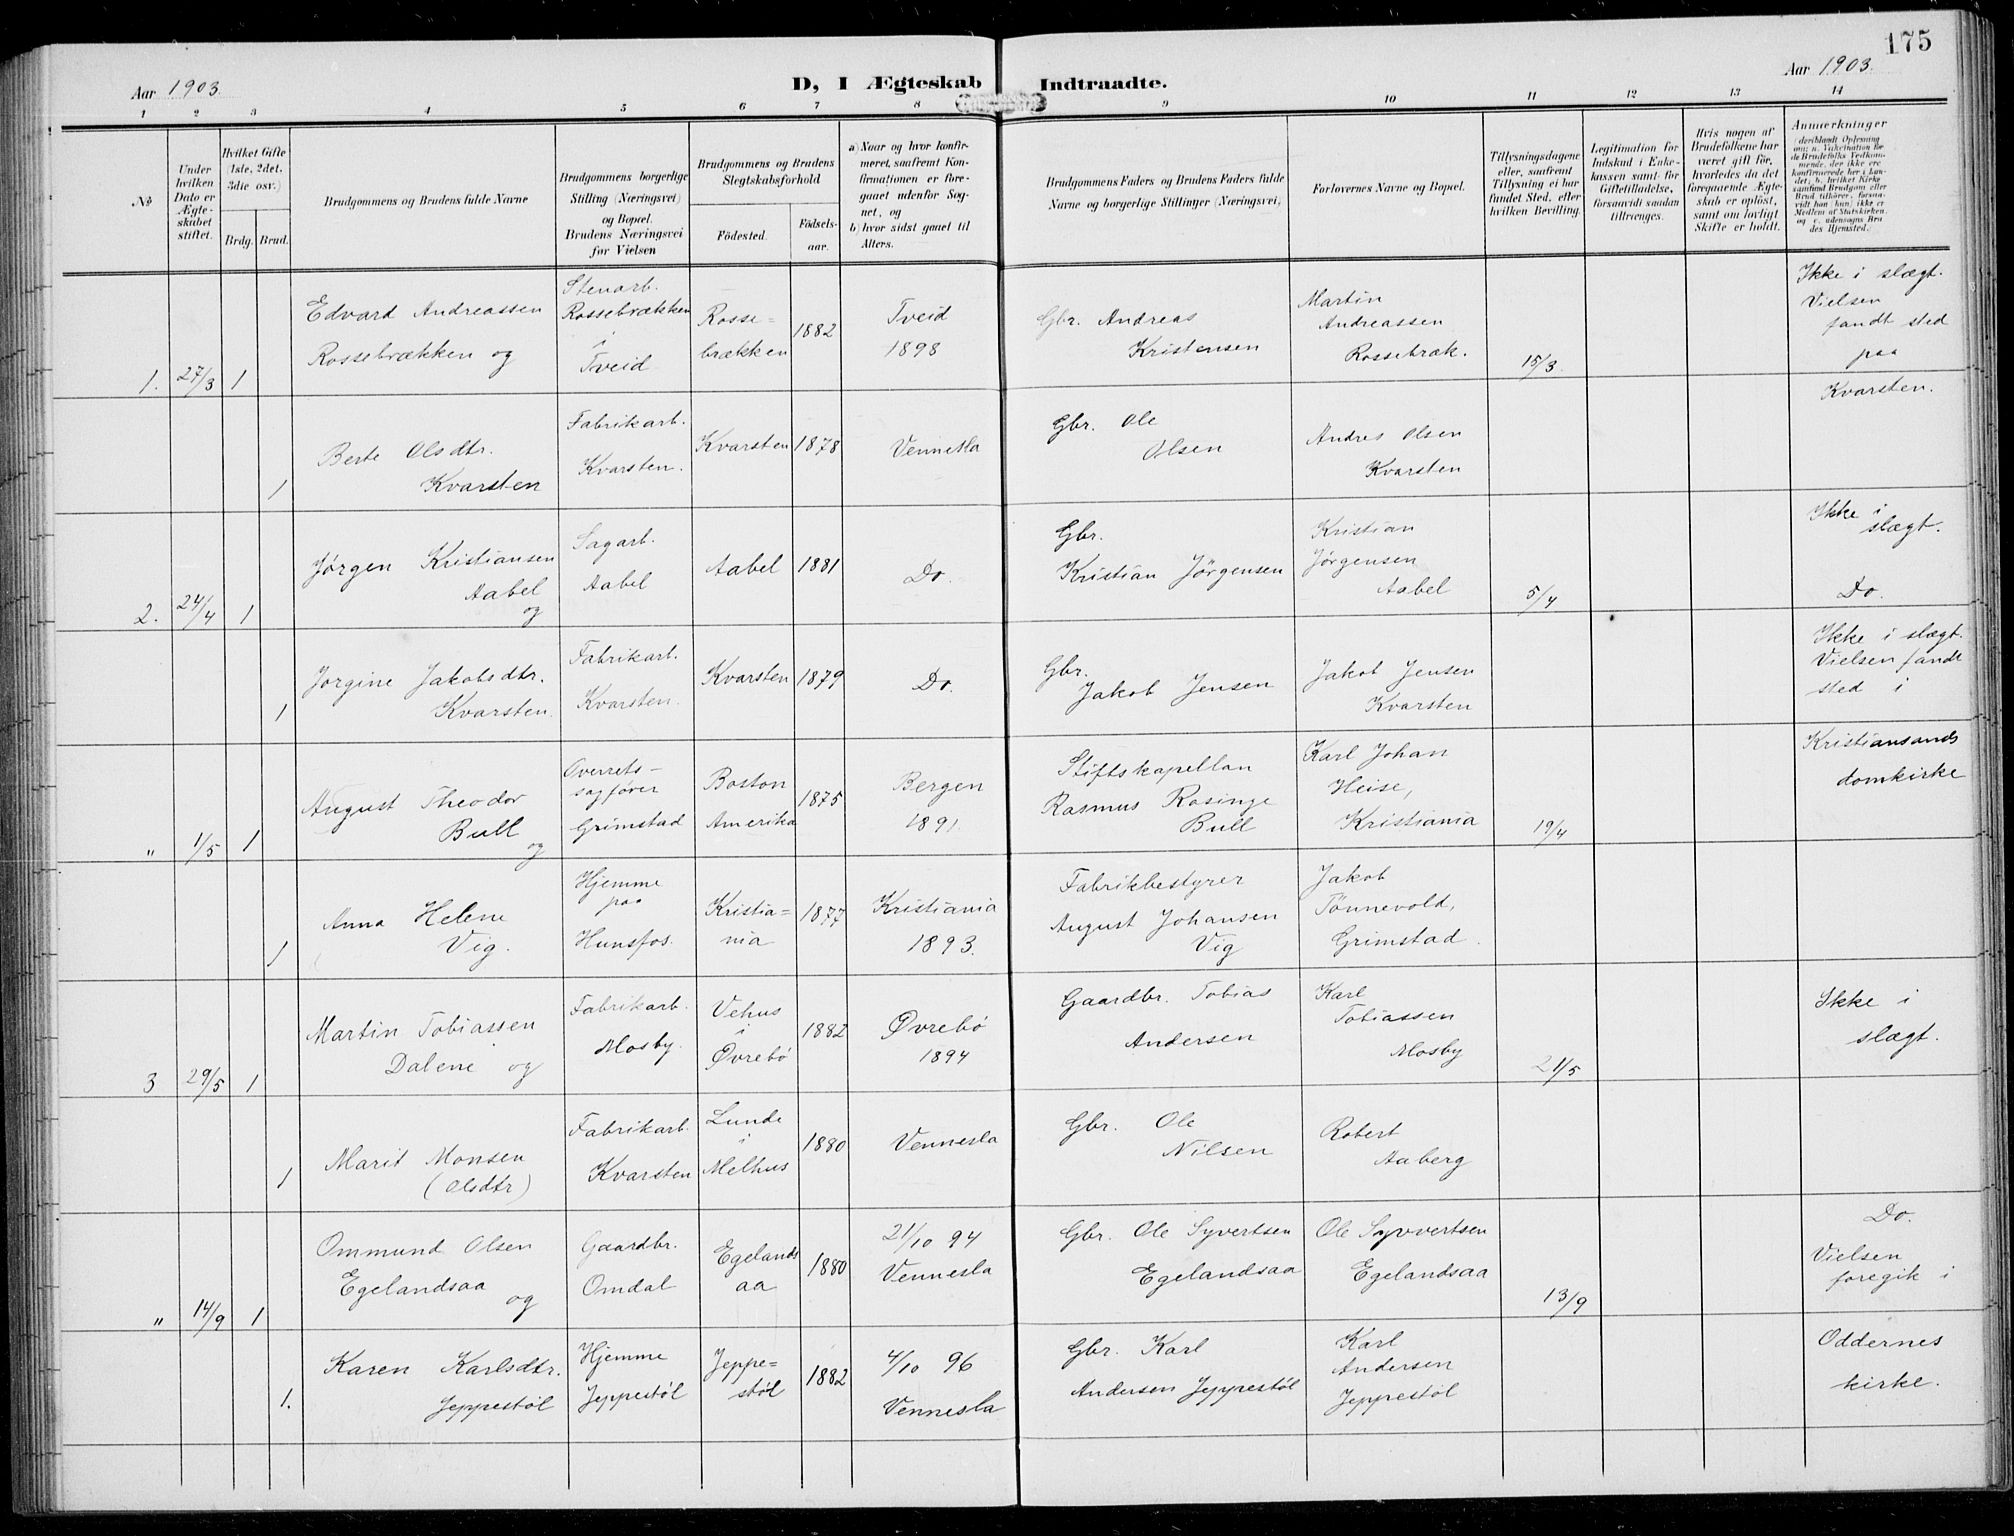 175
Aar 1903.
D, I Ægteskab Indtraadte.
Aar 1903.
1 2 3 4 5 6 7 8 9 10 11 12 13 14
No
Under hvilken Dato er Ægteskabet stiftet.
Hvilket Gifte (1ste, 2det, 3die osv.)
Brdg. Brud.
Brudgommens og Brudens fulde Navne
Brudgommens borgerlige Stilling (Næringsvei) og Bopæl. Brudens Næringsvei før Vielsen
Brudgommens og Brudens Slegtskabsforhold
Fødested. Fødselsaar.
a) Naar og hvor konfirmeret, saafremt Konfirmationen er foregaaet udenfor Sognet, og
b) hvor sidst gaaet til Alters.
Brudgommens Faders og Brudens Faders fulde Navne og borgerlige Stillinger (Næringsvei)
Forlovernes Navne og Bopæl.
Tillysningsdagene eller, saafremt Tillysning ei har fundet Sted, efter hvilken Bevilling.
Legitimation for Indskud i Enkekassen samt for Giftetilladelse, forsaavidt saadan tiltrænges.
Hvis nogen af Brudefolkene har været gift før, hvorledes da det foregaaende Ægteskab er opløst, samt om lovligt Skifte er holdt.
Anmærkninger
1. 27/3 1
Edvard Andreassen
Rossebrækken og
Stenarb.
Rossebrækken
i
Tveid
Rosse=
brækken
1882
Tveid
1898
Gbr. Andreas
Kristensen
Martin
Andreassen
Rossebræk.
15/3.
Ikke i slægt.
Vielsen
fandt sted
paa
Kvarsten.
1
Berte Olsdtr.
Kvarsten
Fabrikarb.
Kvarsten.
Kvarsten
1878
Vennesla
Gbr. Ole
Olsen
Andres Olsen
Kvarsten
2. 24/4 1
Jørgen Kristiansen
Aabel
og
Sagarb.
Aabel
Aabel
1881
Do.
Gbr.
Kristian Jörgensen
Kristian
Jørgensen
Aabel
5/4
Ikke i
slægt.
Do.
1
Jørgine Jakobsdtr.
Kvarsten.
Fabrikarb.
Kvarsten.
Kvarsten
1879
Do.
Gbr.
Jakob Jensen
Jakob Jensen
Kvarsten
Ikke i slægt.
Vielsen fandt
sted i
Kristiansands
domkirke
" 1/5 1
August Theodor
Bull
og
Overrets-
sagfører
Grimstad
Boston
Amerika
1875
Bergen
1891.
Stiftskapellan
Rasmus Rosinge
Bull
Karl Johan
Heise,
Kristiania
19/4
1
Anna Helene
Vig.
Hjemme
paa
Hunsfos.
Kristia=
nia
1877
Kristiania
1893.
Fabrikbestyrer
August Johansen
Vig
Jakob
Tönnevold,
Grimstad.
3 29/5 1
Martin Tobiassen
Dalene og
Fabrikarb.
Mosby.
Vehus
i
Øvrebö
1882
Øvrebö
1894
Gaardbr. Tobias
Andersen
Karl
Tobiassen
Mosby
21/5
Ikke i
slægt.
1
Marit Monsen
(Olsdtr)
Fabrikarb.
Kvarsten
Lunde
i
Melhus
1880
Vennesla
Gbr. Ole
Nilsen
Robert
Aaberg
" 14/9 1
Ommund Olsen
Egelandsaa
og
Gaardbr.
Omdal
Egelands
aa
1880
21/10 94
Vennesla
Gbr. Ole Syvertsen
Egelandsaa
Ole Syvvertsen
Egelandsaa
13/9
Do.
Vielsen
foregik i
Oddernes
kirke.
1.
Karen Karlsdtr.
Jeppestöl
Hjemme
Jeppestöl
Jeppe=
stöl
1882
4/10 96
Vennesla
Gbr. Karl
Andersen Jeppestöl
Karl
Andersen
Jeppestöl